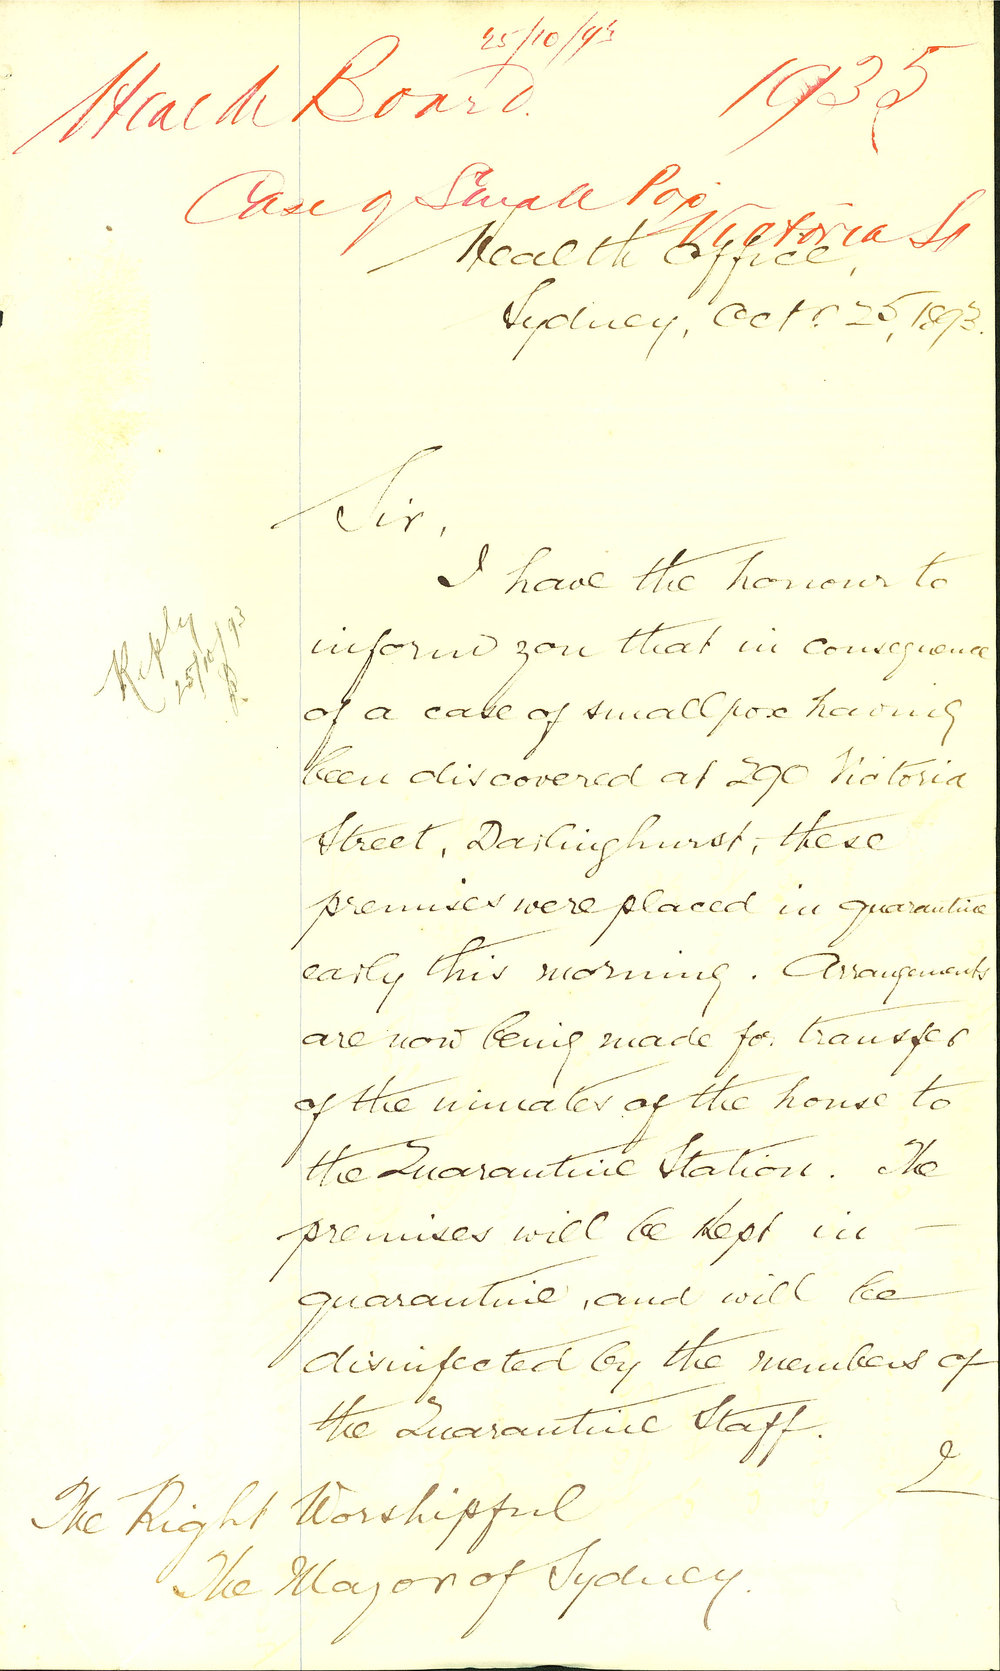 25/10/93
Health Board. 1935
Case of Small Pox
Victoria St
Health Office,
Sydney, Octr. 25, 1893.
Sir,
I have the honour to
inform you that in consequence
of a case of smallpox having
been discovered at 290 Victoria
Street, Darlinghurst, these
premises were placed in quarantine
early this morning. Arrangements
are now being made for transfer
of the inmates of the house to
the Quarantine Station. The
premises will be kept in -
quarantine, and will be
disinfected by the members of
the Quarantine Staff.
I
The Right Worshipful
The Mayor of Sydney.
Reply
25/10/93